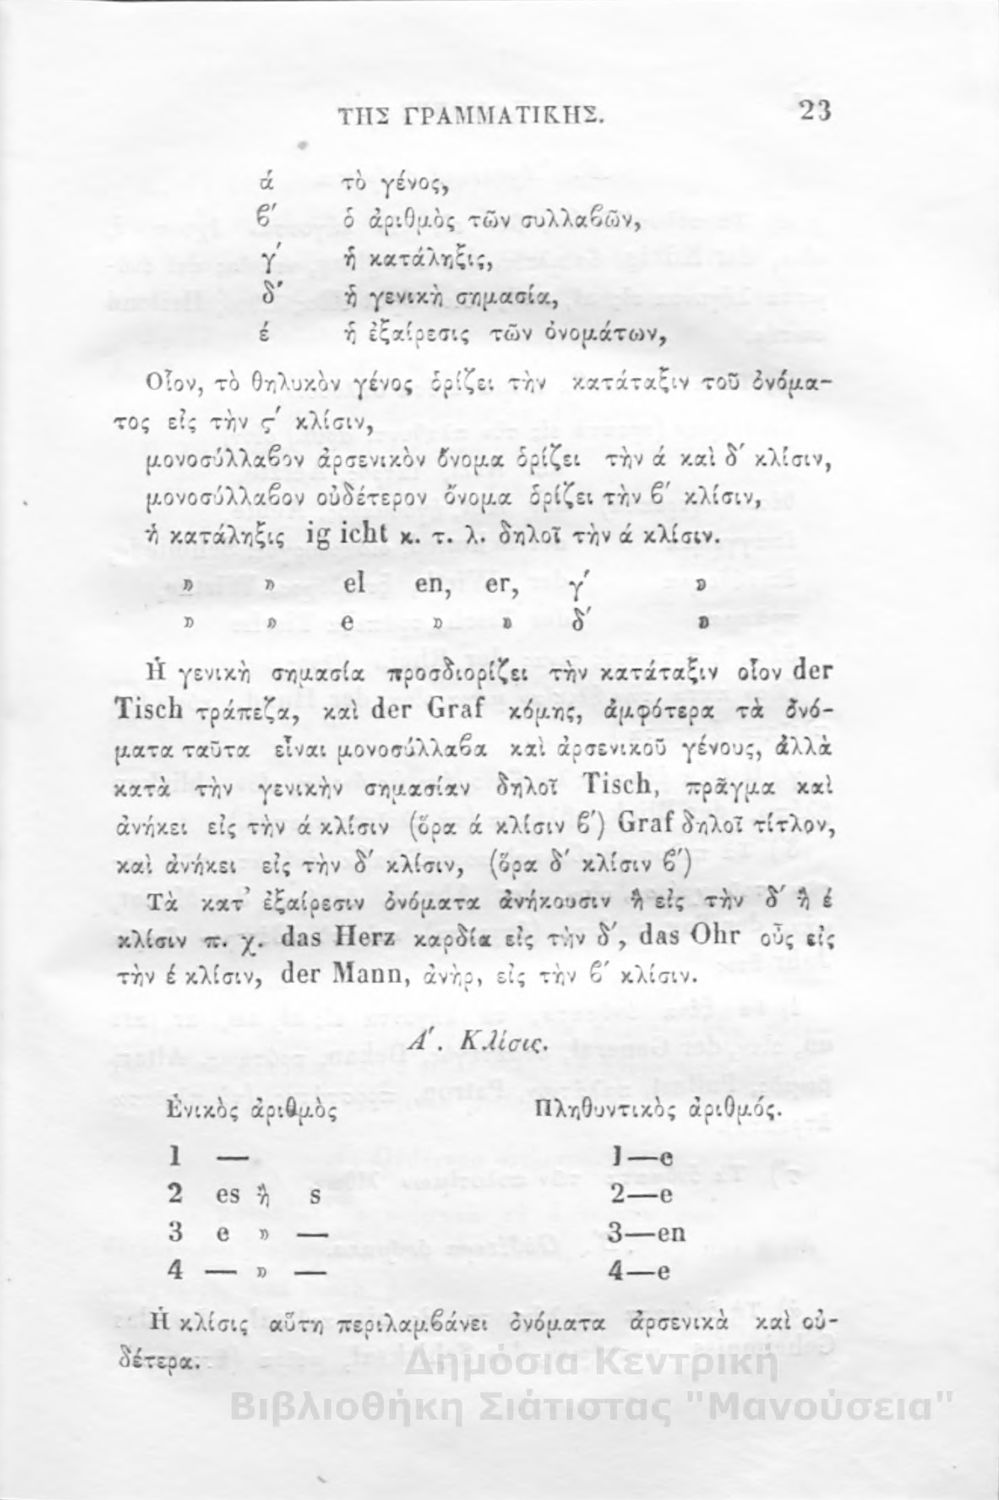 ΤΗΣ ΓΡΑΜΜΑΤΙΚΗΣ. 23
ά τὸ γένος,
ϐʹ ὁ ἀριθμὸς τῶν συλλαϐῶν,
γʹ ἡ κατάληξις,
δʹ ἡ γενικὴ σημασία,
έ ἡ ἐξαίρεσις τῶν ὀνομάτων,
Οἷον, τὸ θηλυκὸν γένος ὁρίζει τὴν κατάταξιν τοῦ ὀνόμα-
τος εἰς τὴν ςʹ κλίσιν,
μονοσύλλαϐον ἀρσενικὸν ὄνομα ὁρίζει τὴν ά καὶ δʹ κλίσιν,
μονοσύλλαϐον οὐδέτερον ὄνομα ὁρίζει τὴν ϐʹ κλίσιν,
ἡ κατάληξις ig icht κ. τ. λ. δηλοῖ τὴν ά κλίσιν.
» » el en, er, γʹ »
» » e » » δʹ »
Ἡ γενικὴ σημασία προσδιορίζει τὴν κατάταξιν οἷον der
Tisch τράπεζα, καὶ der Graf κόμης, ἀμφότερα τὰ ὀνό-
ματα ταῦτα εἶναι μονοσύλλαϐα καὶ ἀρσενικοῦ γένους, ἀλλὰ
κατὰ τὴν γενικὴν σημασίαν δηλοῖ Tisch, πρᾶγμα καὶ
ἀνήκει εἰς τὴν ά κλίσιν (ὅρα ά κλίσιν ϐʹ) Graf δηλοῖ τίτλον,
καὶ ἀνήκει εἰς τὴν δʹ κλίσιν, (ὅρα δʹ κλίσιν ϐʹ)
Τὰ κατ᾽ ἐξαίρεσιν ὀνόματα ἀνήκουσιν ἢ εἰς τὴν δʹ ἢ έ
κλίσιν π. χ. das Herz καρδία εἰς τὴν δʹ, das Ohr οὖς εἰς
τὴν έ κλίσιν, der Mann, ἀνὴρ, εἰς τὴν ϐʹ κλίσιν.
Αʹ. Κλίσις.
Ἑνικὸς ἀριθμὸς Πληθυντικὸς ἀριθμός.
1 — 1—e
2 es ἢ s 2—e
3 e » — 3—en
4 — » — 4—e
Ἡ κλίσις αὕτη περιλαμϐάνει ὀνόματα ἀρσενικὰ καὶ οὐ-
δέτερα.
Δημόσια Κεντρική
Βιβλιοθήκη Σιάτιστας "Μανούσεια"